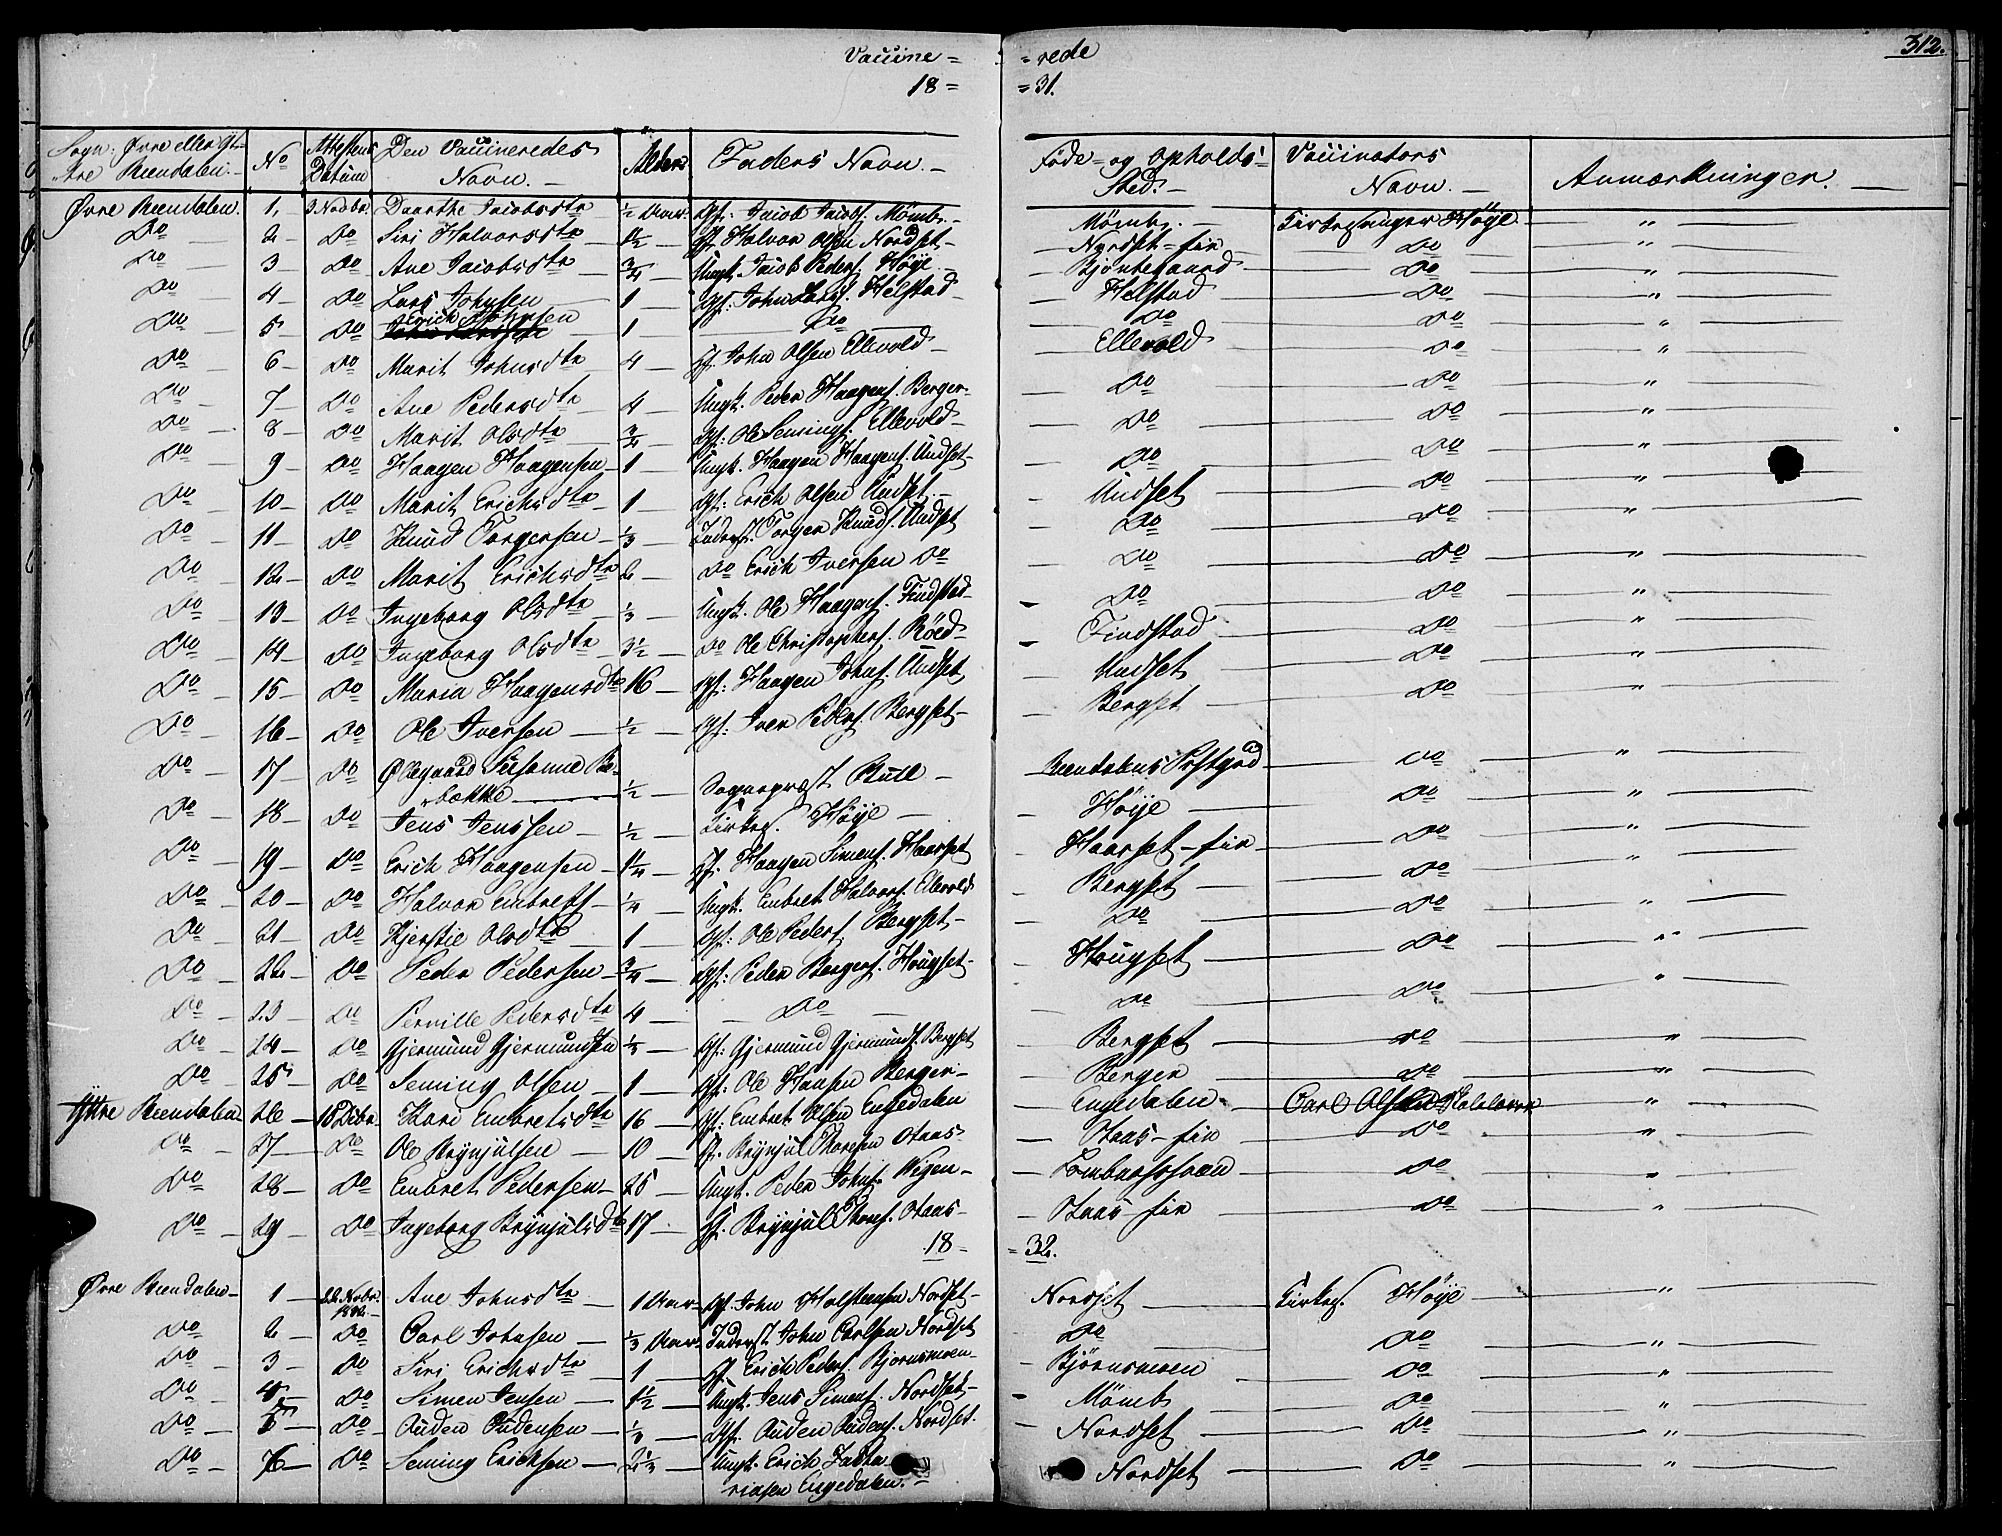 312.
Vaccine = = rede
18 = = 31.
Sogn: Øvre eller Yt- N° Attestens Den Vaccineredes Alder Faders Navn. Føde= og Opholds= Vaccinators Anmærkninger.
tre Rendalen. Datum Navn. Sted. Navn.
Øvre Rendalen. 1. 3 Novbr. Daarthe Jacobsdtr ½ Aar. Gf: Jacob Jacobs. Mømb. Mømb. Kirkesanger Høye "
Do 2 Do Siri Halvorsdtr 1½ Hf. Halvor Olsen Nordset Nordset=eie Do "
Do 3 Do Ane Jacobsdtr ¾ Ungk. Jacob Peders. Høye Bjöntegaard Do "
Do 4 Do Lars Johnsen 1 Gf: John Lars. Helstad Helstad Do "
Do 5 Do Erich Johnsen 1 Do Do Do "
Do 6 Do Marit Johnsdtr 4 Hf. John Olsen Ellevold Ellevold Do "
Do 7 Do Ane Pedersdtr 4 Ungk. Peder Haagens. Berger Do Do "
Do 8 Do Marit Olsdtr ¾ Gf: Ole Semings. Ellevold Do Do "
Do 9 Do Haagen Haagensen 1 Ungk. Haagen Haagens. Undset Do Do "
Do 10 Do Marit Erichsdtr 1 Gf: Erich Olsen Undset Undset Do "
Do 11 Do Knud Torgersen ⅓ Inderst. Torger Knuds. Undset Do Do "
Do 12 Do Marit Erichsdtr 2 Do Erich Iversen Do Do Do "
Do 13 Do Ingeborg Olsdtr ⅓ Ungk. Ole Haagens. Findstad Do Do "
Do 14 Do Ingeborg Olsdtr 3½ Do Ole Christophers. Röed Findstad Do "
Do 15 Do Maria Haagensdtr 16 Gf: Haagen Johns. Undset Undset Do "
Do 16 Do Ole Iversen ½ Gf: Iver Peders. Bergset Bergset Do "
Do 17 Do Ølegaard Susanne Re-
bekke ½ Sognepræst Bull Rendalens Præstgrd Do "
Do 18 Do Jens Jenssen ½ Kirkes. Høye Høije Do "
Do 19 Do Erich Haagensen 1¼ Hf. Haagen Simens. Haarset Haarset=eie Do "
Do 20 Do Halvor Embrets. ¼ Ungk. Embret Halvors. Ellevold Bergset Do "
Do 21 Do Kjerstie Olsdtr 1 Gf: Ole Peders. Bergset Do Do "
Do 22 Do Peder Pedersen ¾ Gf: Peder Bergers. Hougset Hougset Do "
Do 23 Do Pernille Pedersdtr 4 Do Do Do "
Do 24 Do Gjermund Gjermundsen ⅓ Gf: Gjermund Gjermunds. Bergset Bergset Do "
Do 25 Do Seming Olsen 1 Gf: Ole Hansen Berger Berger Do "
Yttre Rendalen 26 18 Decbr. Kari Embretsdtr 16 Gf: Embret Olsen Engedalen Engedalen Carl Olsen "
Do 27 Do Ole Brynjulsen 10 Hf. Brynjul Thoresen Otaas Otaas=eie Do "
Do 28 Do Embret Pedersen 25 Ungk. Peder Johns. Wigen Do "
Do 29 Do Ingeborg Brynjulsdtr 17 Hf. Brynjul Thores. Otaas Otaas=eie Do "
18 = = 32.
Øvre Rendalen 1 22 Novbr. 1832. Ane Johnsdtr 1 Aar Gf. John Halstensen Nordset Nordset Kirkes. Höye "
Do 2 Do Carl Johnsen ⅓ Aar Inderst John Carlsen Nordset Do Do "
Do 3 Do Siri Erichsdtr 1 Hf. Erich Peders. Bjornsmoen Bjørnsmoen Do "
Do 4 Do Simen Jensen 1½ Ungk. Jens Simens. Nordset Mömb Do "
Do 5 Do Auden Audensen ⅓ Gf. Auden Audens. Nordset. Nordset Do "
Do 6 Do Seming Erichsen 2⅓ Ungk. Erich Zacha-
riasen Engedalen. Nordset Do "